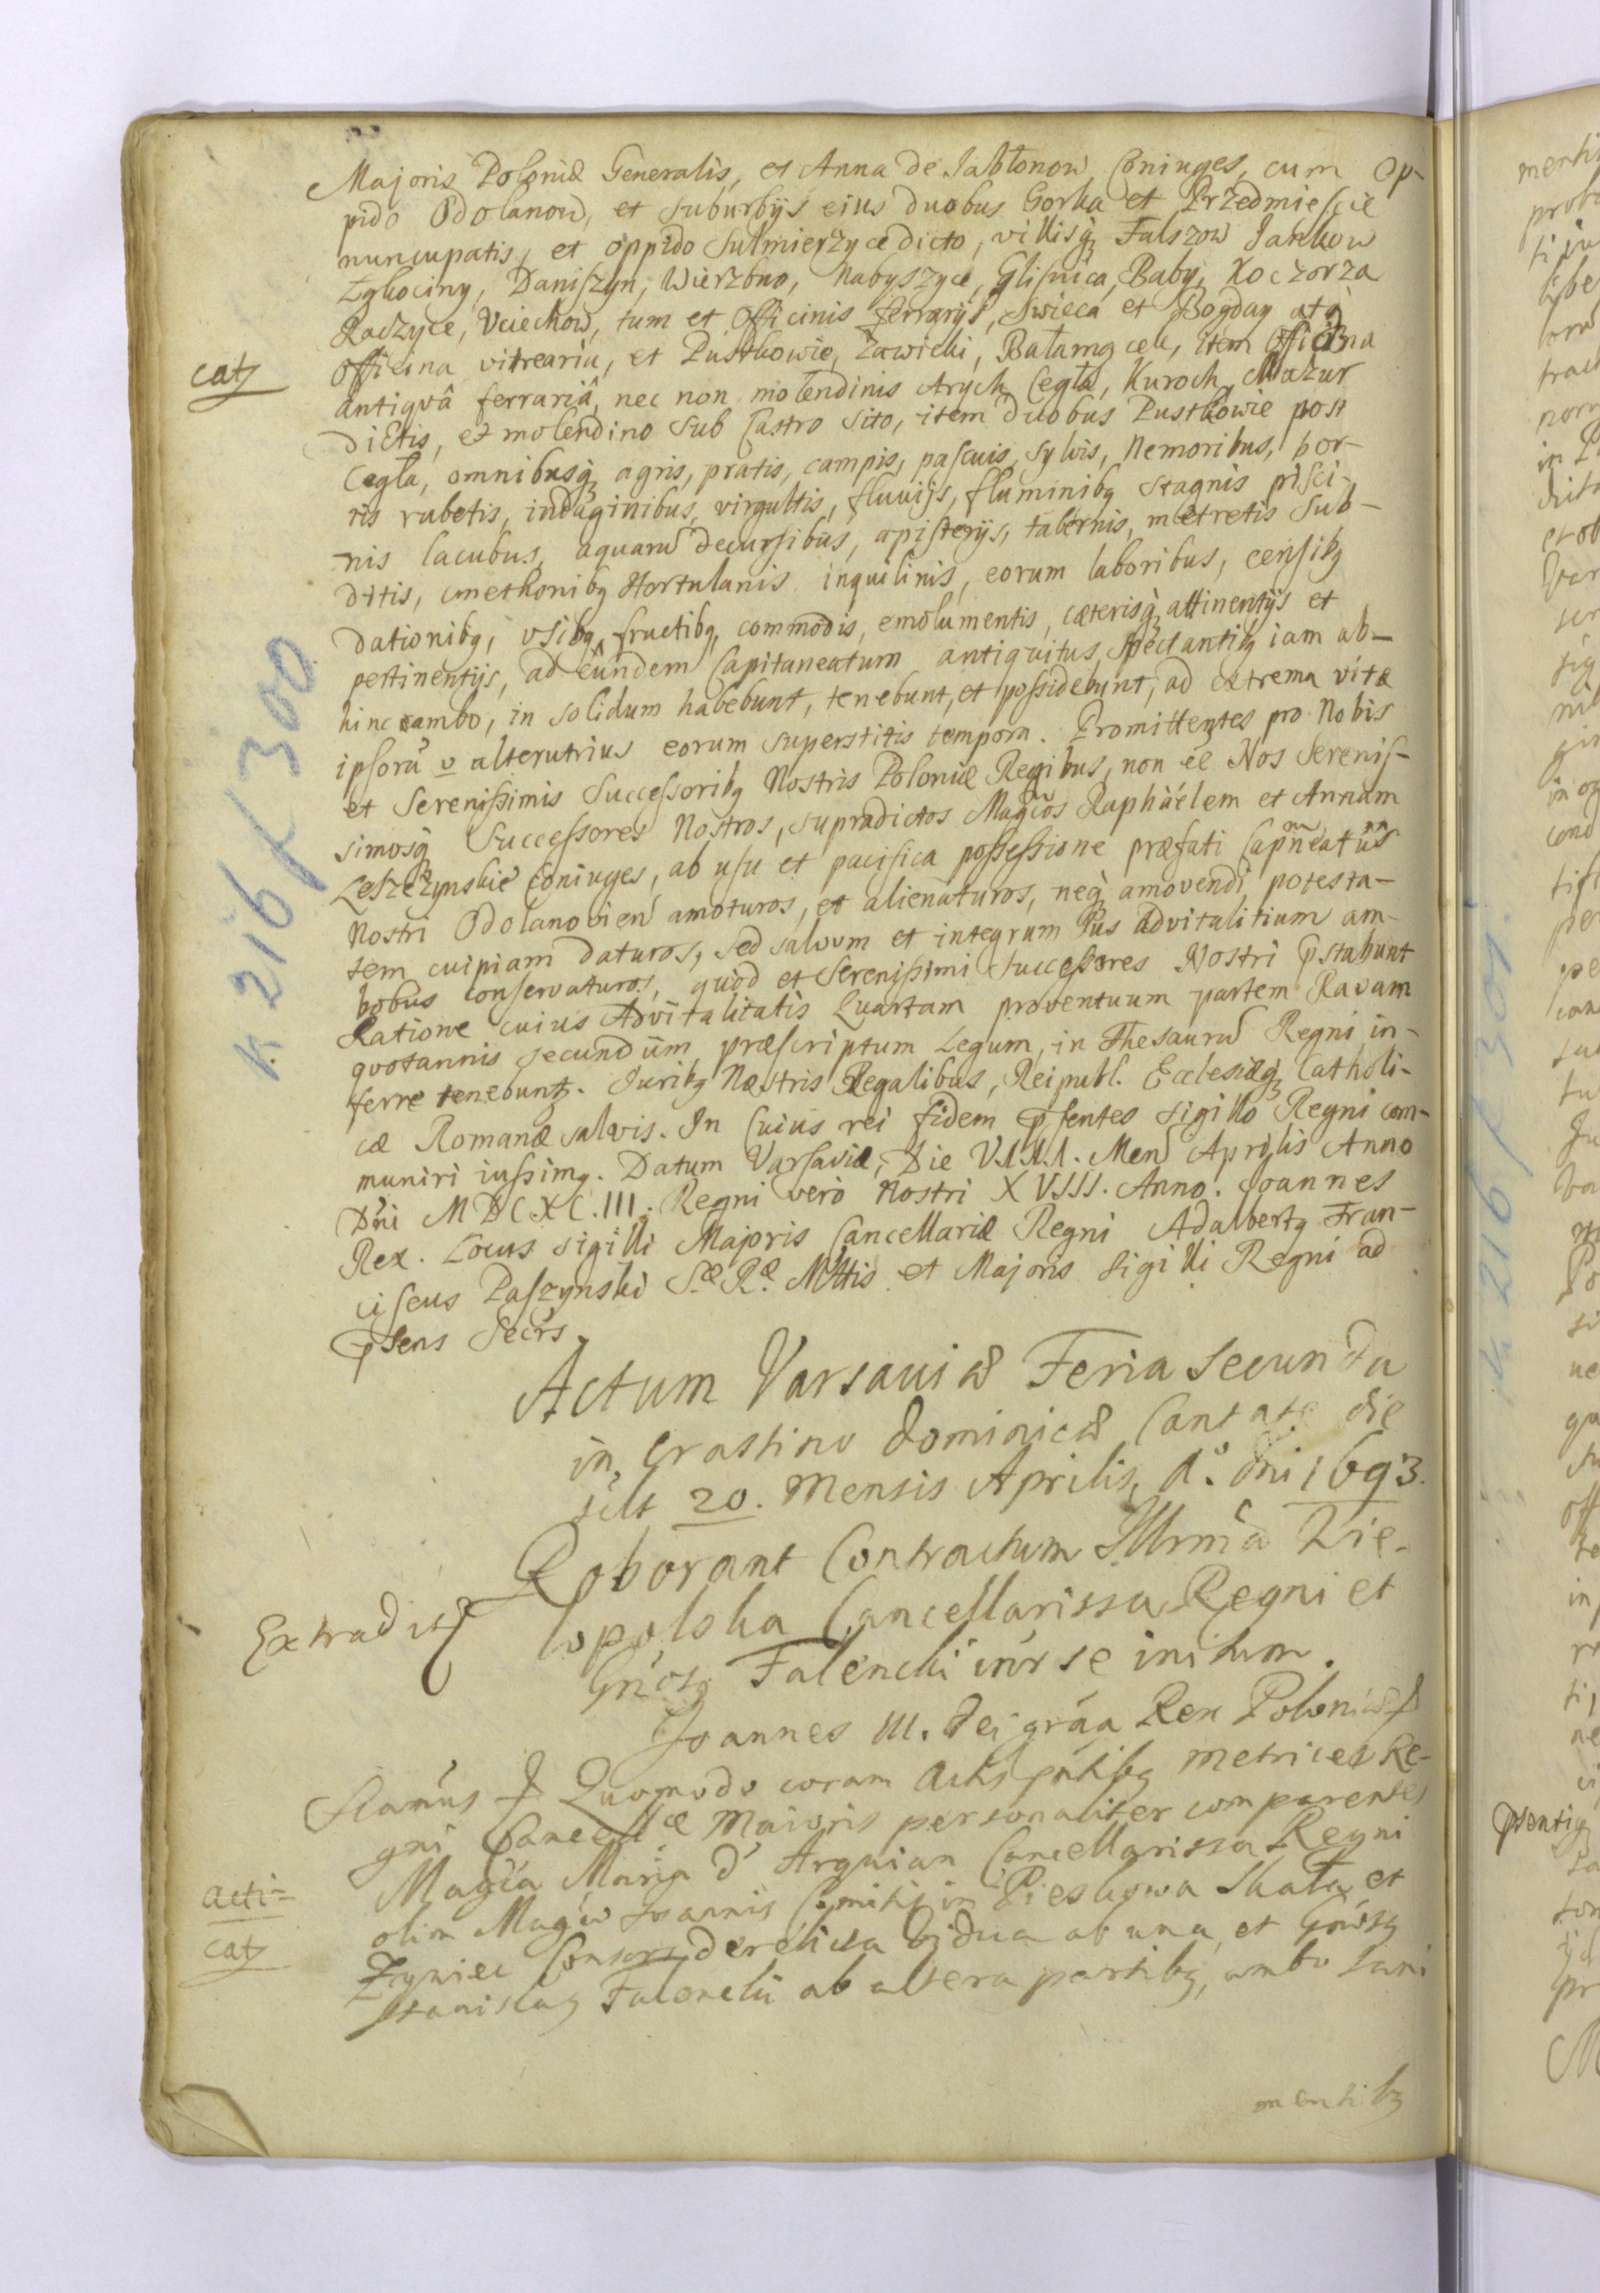 Majoris Poloniæ Generalis, et Anna de Jabłonow Coniuges, cum Op-
pido Odolanow, et suburbijs eius duobus Gorka et Przedmiescie
nuncupatis, et oppido Sulmierzyce dicto, villisq3 Falszow Jankow
Zgkociny, Daniszyn, Wierzbno, Nabyszyce, Glisnica, Baby, Koczorza
Radzyce, Uciechow, tum et Officinis ferrarijs, Swieca et Bogday atq
officina vitrearia, et Pustkowie, Zawicki, item Officina
catz
antiqvâ ferrariâ, nec non molendinis Arych Cegła, Kuroch, Mazur
dictis, et molendino sub Castro sito, item duobus Pustkowie post
Cegła, omnibusq3 agris, pratis, campis, pascuis, sylvis, nemoribus, hor-
tis rubetis, indaginibus, virgultis, fluvijs, fluminibq stagnis pisci-
nis lacubus, aquarū decursibus, apisterijs, tabernis, metretis sub-
ditis, cmethonibq Hortulanis inquilinis, eorum laboribus, censibq
dationibq, vsibq, fructibq, commodis, emolumentis, cæterisq3 attinentijs et
pertinentijs, ad eundem Capitaneatum antiquitus spectantibq iam ab-
hinc ambo, in solidum habebunt, tenebunt, et possidebunt, ad extrema vitæ
ipsorū v alterutrius eorum superstitis tempora. Promittentes pro Nobis
et Serenissimis Successoribq Nostris Poloniæ Regibus, non eē Nos Serenis-
simosq3 Successores Nostros, supradictos Magcos Raphaélem et Annam
Leszczynskie Coniuges, ab usu et pacifica possessione præfati Capneatus
Nostri Odolanovien amoturos, et alienaturos, neq amovendi potesta-
tem cuipiam daturos, sed salvum et integrum Jus advitalitium am-
bobus conservaturos, quod et Serenissimi Successores Nostri pstabunt
Ratione cuius Advitalitatis Quartam proventuum partem Ravam
quotannis secundum præscriptum Legum, in Thesaurū Regni in-
ferre tenebuntz. Juribq Nostris Regalibus, Reipubl. Ecclesiæq3 Catholi-
cæ Romanæ salvis. In Cuius rei fidem psentes sigillo Regni com-
muniri iussimq. Datum Varsaviæ, Die VIII. Men Aprilis Anno
Dni MDCXC.III. Regni vero Nostri XVIII. Anno. Joannes
Rex. Locus sigilli Majoris Cancellariæ Regni Adalbertq Fran-
ciscus Paszynski S.æ R.æ Mttis et Majoris sigilli Regni ad
psens Secrs
K 216 f 300
Actum Varsaviæ Feria Secunda
in Crastino Dominicæ Cantate die
silt 20. Mensis Aprilis, A.º Dni 1693.
Roborant Contractum Illrma Wie-
Extraditz
lopolska Cancellarissa Regni et
Gnosq Falencki inr se initum.
Joannes III. Dei gráa Rex Poloniæ
Scamus Quomodo coram Actis pntibq Metrices Re-
gni Cancellæ Maioris personaliter comparentes
Magca Maria d' Arquian Cancellarissa Regni
acti-
catz
olim Magci Joannis Comitis in Pieskowa Skała et
Zyniec Consors derelicta vidua ab una, et Gnosq
Stanislaq Falencki ab altera partibq, ambo Sani
mentibq